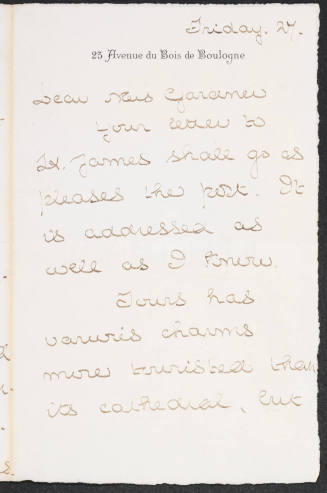 Friday. 27.
23 Avenue du Bois de Boulogne
Dear Mrs Gardner
Your letter to
H. James shall go as
pleases the post. It
is addressed as
well as I know.
Tours has
various charms
more twisted than
its cathedral, but